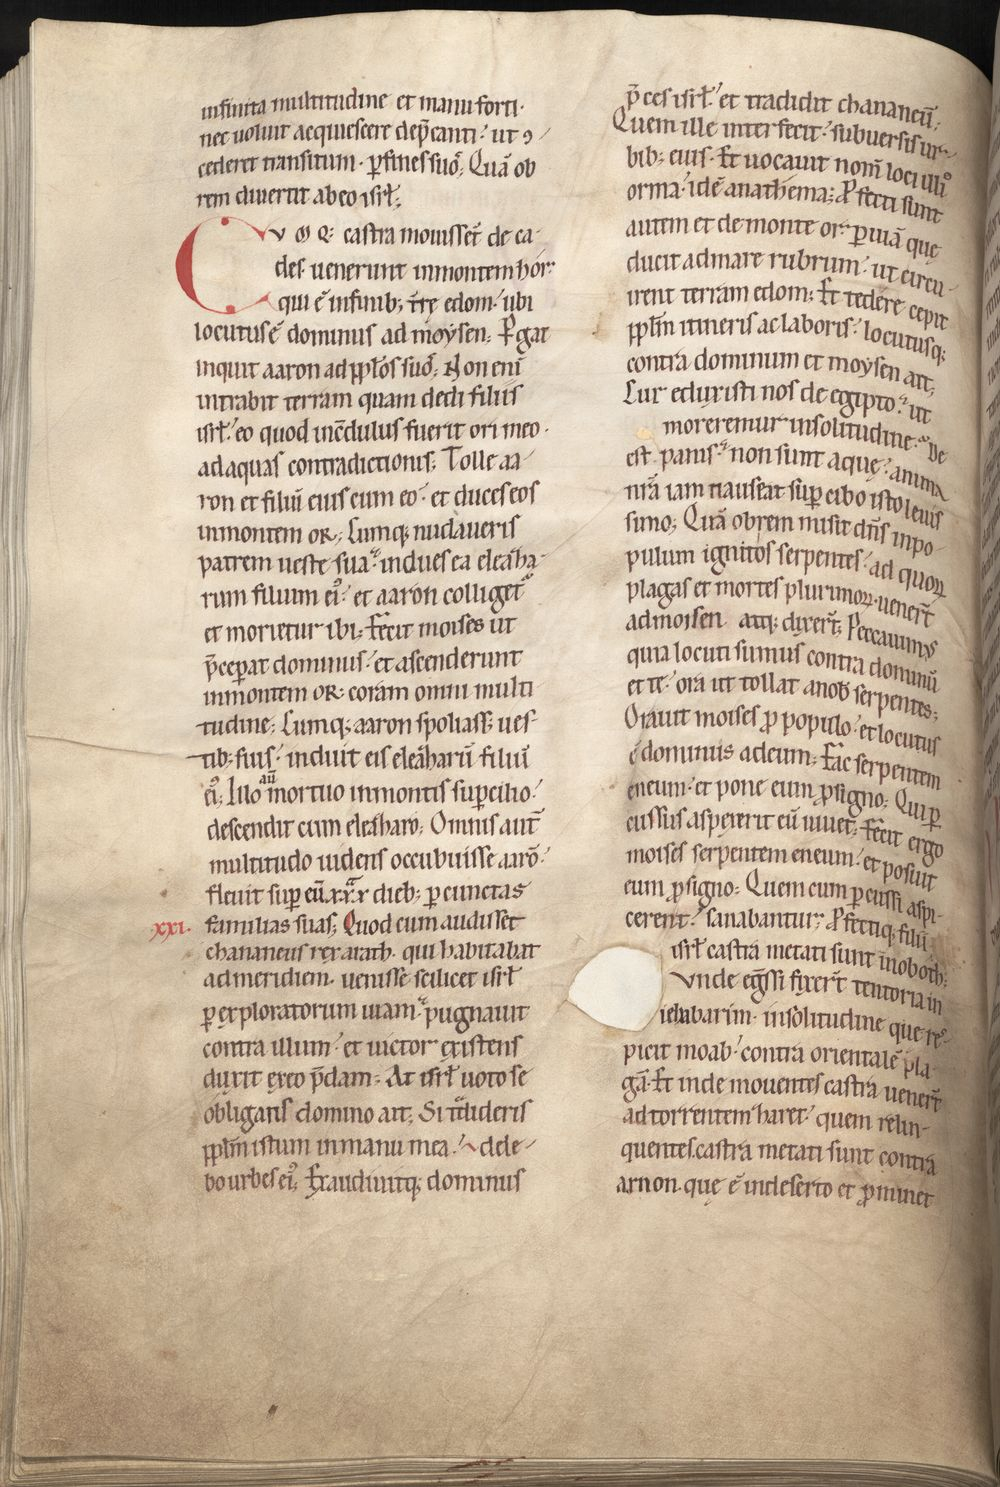 infinita multitudine et manu forti.
nec uoluit acquiescere dep̄canti: ut ꝯ
cederet transitum. ꝑ fines suos̄; Quā ob
rem diuertit ab eo isrl̄;
Cvmq: castra mouissēt de ca-
des. uenerunt in montem hor:
qui ē in finib; tr̄ę edom. ubi
locutus ē dominus ad moysen; Pgat
inquit aaron ad pplōs suos̄; Non enī
intrabit terram quam dedi filiis
isrl̄. eo quod incr̄edulus fuerit ori meo.
ad aquas contradictionis; Tolle aa-
ron et filiū eius cum eo. et duces eos
in montem or; Cumq; nudaueris
patrem ueste sua: indues ea eleaȥa-
rum filium ei᾽. et aaron colliget᷑
et morietur ibi; Fecit moises ut
p̄ceperat dominus. et ascenderunt
in montem or: coram omni multi
tudine; Cumq; aaron spoliass; ues-
tib; suis. induit eis eleaȥarū filiū
ei᾽; Illo aū mortuo in montis suꝑcilio.
descendit cum eleaȥaro; Omnis aūt
multitudo uidens occubuisse aarō.
fleuit suꝑ eū xxx dieb; ꝑ cunctas
xxi. familias suas; Quod cum audisset
chananeus rex arath. qui habitabat
ad meridiem. uenisse scilicet isrl̄
ꝑ exploratorum uiam: pugnauit
contra illum. et uictor existens
duxit ex eo p̄dam; At isrl̄ uoto se
obligans domino ait; Si tradideris
pplm̄ istum in manu mea. dele-
bo urbes ei᾽; Exaudiuitq; dominus
p̄ces isrl̄. et tradidit chananeū;
Quem ille interfecit. subuersis ur-
bib; eius. Et uocauit nom̄ loci illi᾽
orma. id ē anathema; Pfecti sunt
autem et de monte or. ꝑ uiā que
ducit ad mare rubrum. ut circu-
irent terram edom; Et tedere cepit
pplm̄ itineris ac laboris. locutusq;
contra dominum et moysen ait;
Cur eduxisti nos de egipto. ut
moreremur in solitudine. De
est panis. non sunt aquę. anima
nr̄a iam nauseat suꝑ cibo isto leuis
simo; Quā obrem misit dn̄s in po-
pulum ignitos serpentes. ad quoꝝ
plagas et mortes plurimoꝝ. uener̄t
ad moisen atq; dixer̄t; Peccauimus
quia locuti sumus contra dominū
et te. ora ut tollat a nob̄ serpentes;
Orauit moises ꝓ populo. et locutus
ē dominus ad eum; Fac serpentem
eneum. et pone eum ꝓ signo; Qui ꝑ
cussus aspexerit eū uiuet; Fecit ergo
moises serpentem eneum. et posuit
eum ꝓ signo; Quem cum ꝑcussi aspi-
cerent. sanabantur; Pfectiq; filii
isrl̄ castra metati sunt in oboth;
Vnde egr̄ssi fixer̄t tentoria in
ieabarim. in solitudine que res᾽
picit moab. contra orientalē pla-
gā. Et inde mouentes castra uener̄t
ad torrentem ȥaret. quem relin-
quentes castra metati sunt contra
arnon. quę ē in deserto et ꝓminet